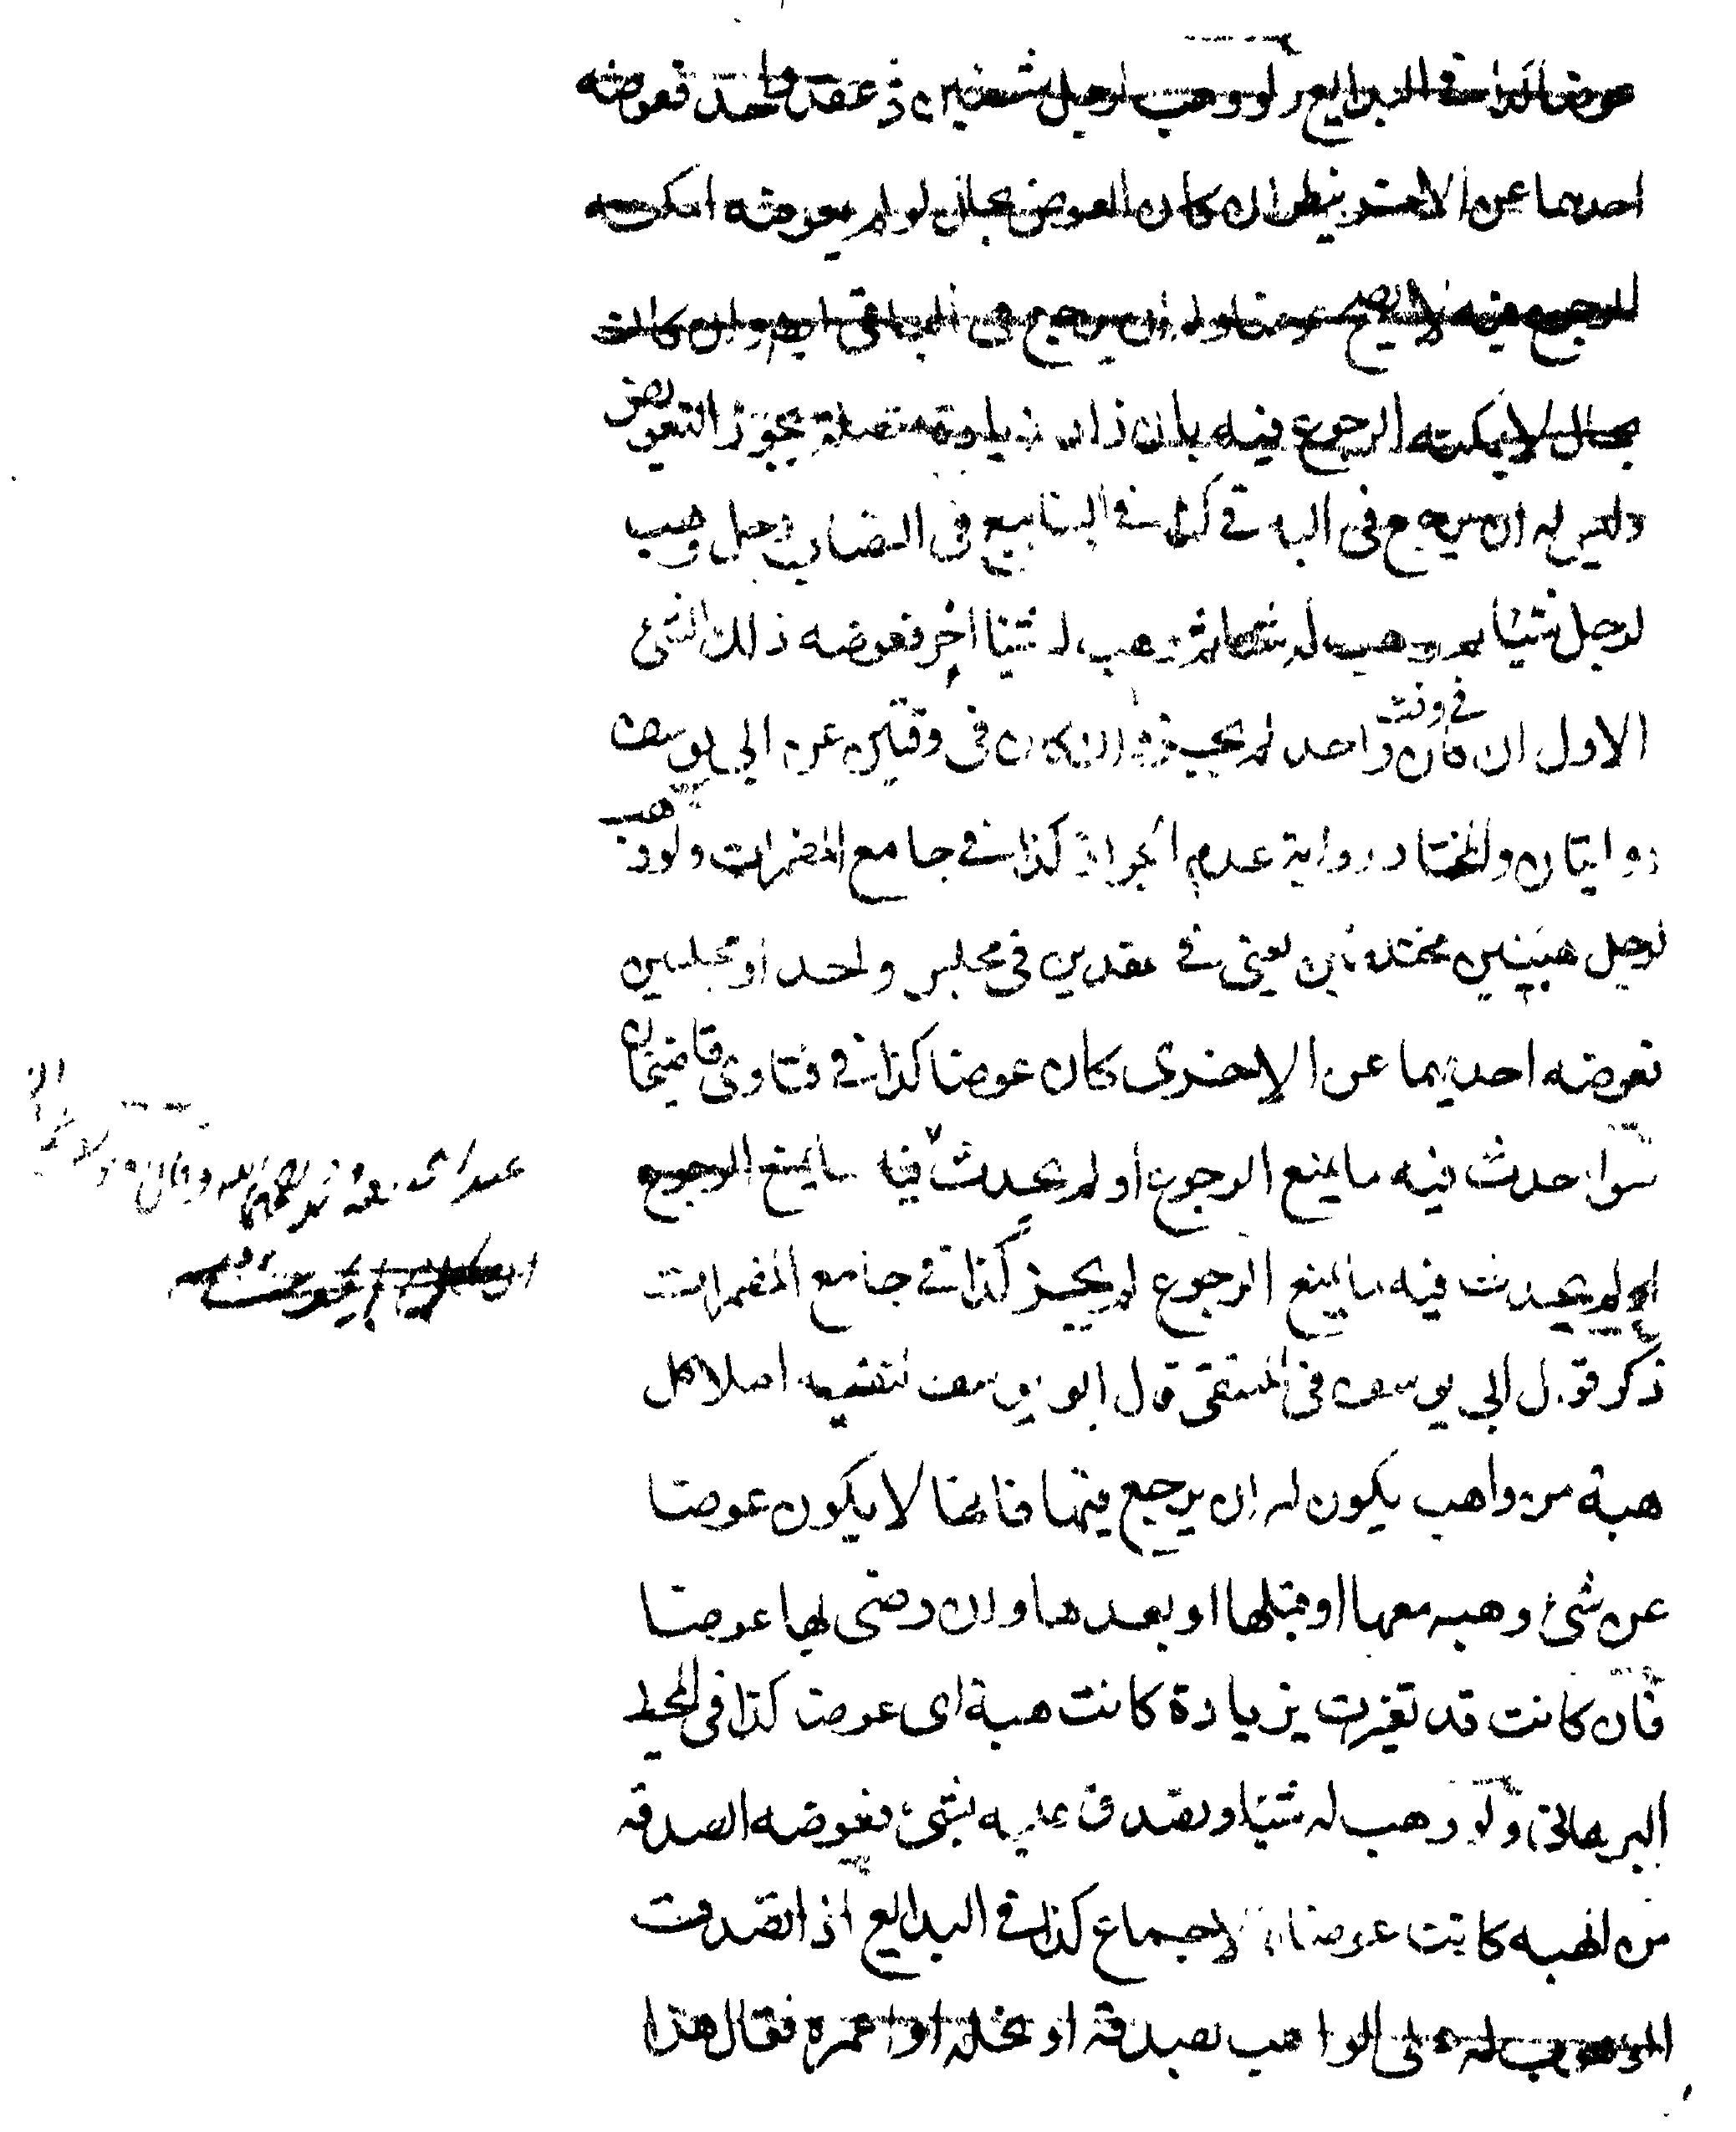 عوضا كذا في البدايع ولو وهب لرجل شيئين في عقد واحد فعوضه
احديهما عن الاخر ينظر ان كان العوض بحال لو لم يعوضه امكنه
الرجوع فيه لا يصح عوضا وله ان يرجع في الباقي ايضا وان كانت
بحال لا يمكنه الرجوع فيه بان زاد زيادة متصلة يجوز التعويض
وليس له ان يرجع في الباقي كذا في الينابيع في النصاب رجل وهب
لرجل شيئا ثم وهب له شيئا اخر فعوضه ذلك الشئ
الاول ان كان في وقت واحد لم يجز وان كان في وقتين عن ابي يوسف
روايتان والمختار رواية عدم الجواز كذا في جامع المضمرات ولو وهب
لرجل هبتين مختلفتين يعني في عقدين في مجلس واحد او مجلسين
فعوضه احديهما عن الاخرى كان عوضا كذا في فتاوى قاضيخان
سواء حدث فيه ما يمنع الرجوع او لم يحدث فيها ما يمنع الرجوع
او لم يحدث فيه ما يمنع الرجوع لم يجز كذا في جامع المضمرات
ذكر قول ابي يوسف في المنتقى قال ابو يوسف لنفسه اصلا كل
هبة من واهب يكون له ان يرجع فيها فانها لا يكون عوضا
عن شئ وهبه معها او قبلها او بعدها وان رضى بها عوضا
فان كانت قد تغيرت بزيادة كانت هبة اى عوضا كذا في المحيط
البرهاني ولو وهب له شيئا وتصدق عليه بشئ فعوضه الصدقة
من الهبه كانت عوضا بالاجماع كذا في البدايع اذا تصدقت
الموهوب له على الواهب بصدقة او نحله او اعمره فقال هذا